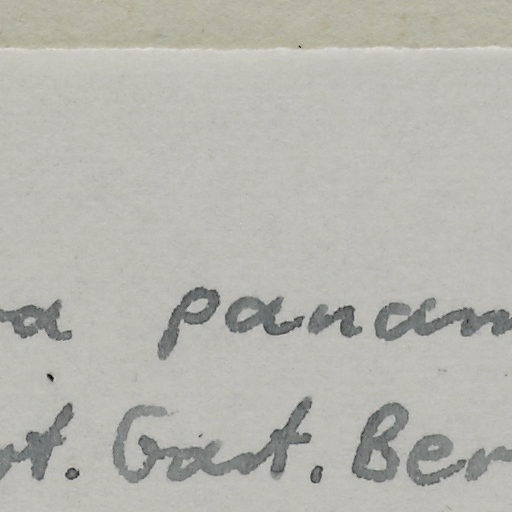 ra panam
ot. Gart. Ber